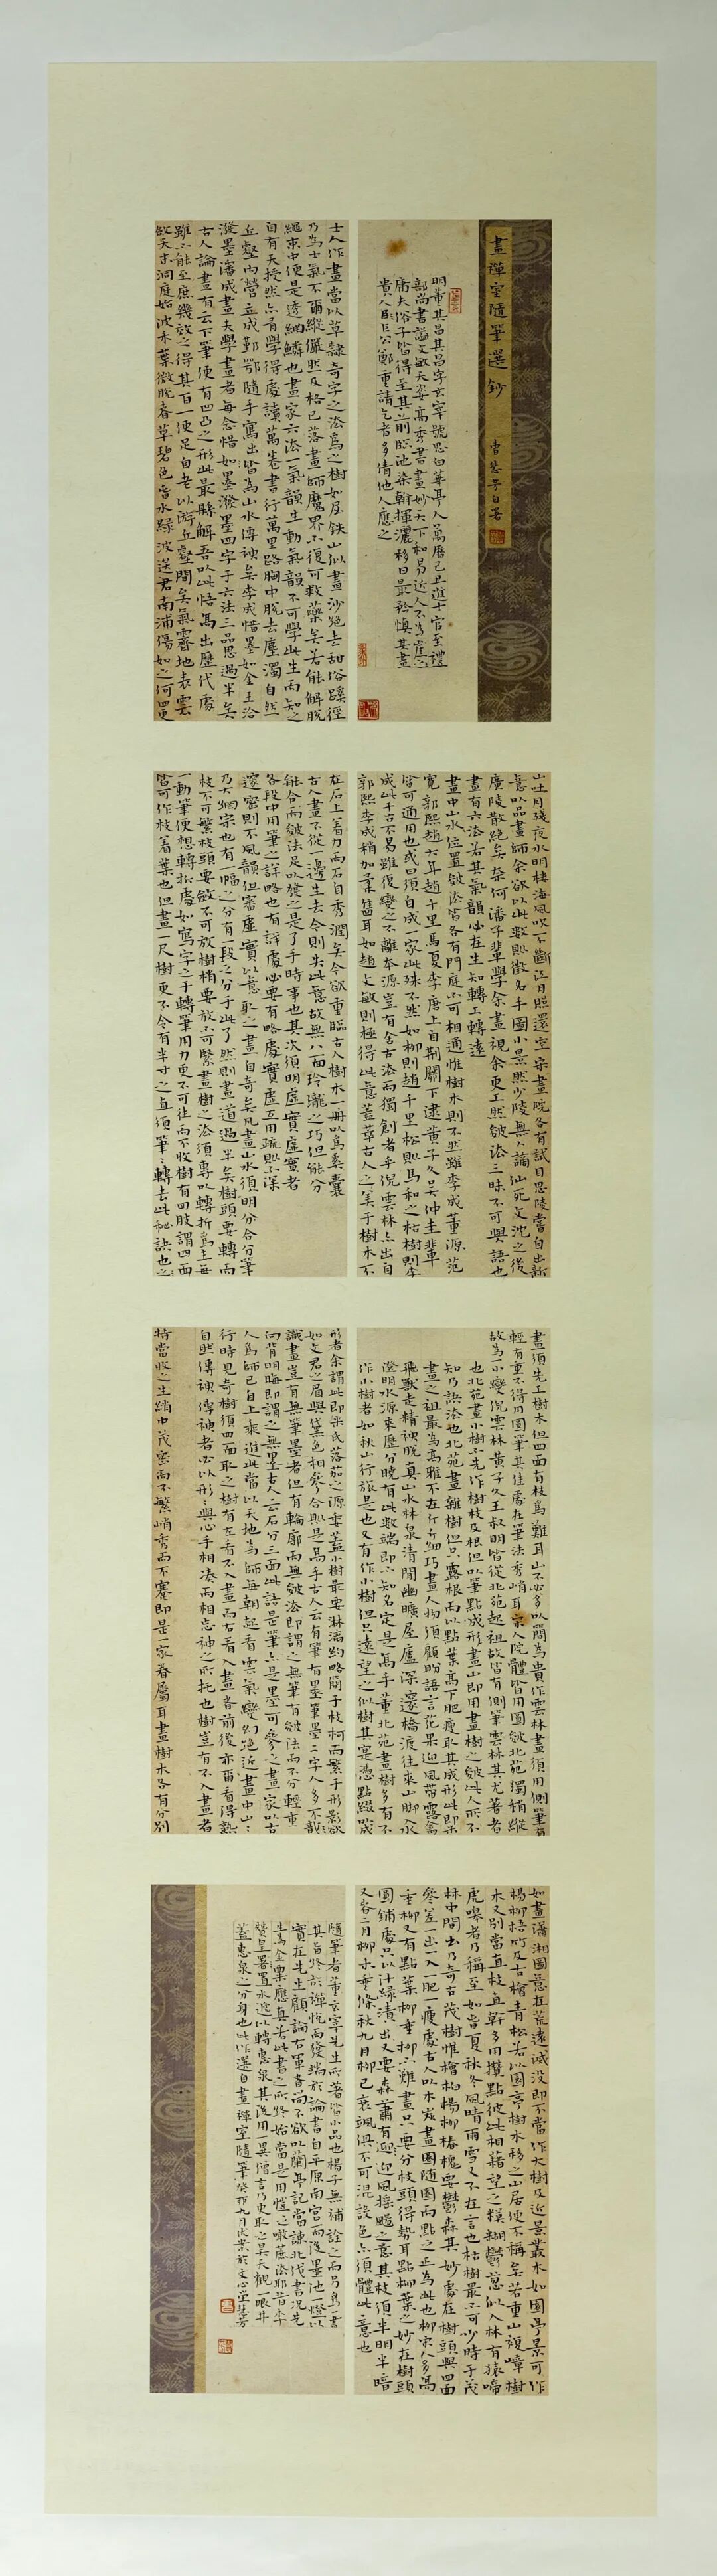 畫禪室隨筆選鈔
雪慧芳自署
明董其昌其昌字玄宰號思白華亭人萬曆己丑進士官至禮
部尚書謚文敏天姿高秀書畫妙天下和易近人不為崖岸
庸夫俗子皆得至其前臨池染翰揮灑移日最矜慎其畫
貴人鉅公鄭重請乞者多倩他人應之
士人作畫當以草隸奇字之法為之樹如屈鐵山似畫沙絕去甜俗蹊徑
乃為士氣不爾縱儼然及格已落畫師魔界不復可救藥矣若能解脫
繩束中便是透網鱗也畫家六法一氣韻生動氣韻不可學此生而知之
自有天授然亦有學得處讀萬卷書行萬里路胸中脫去塵濁自然
丘壑內營立成鄞鄂隨手寫出皆為山水傳神矣李成惜墨如金王洽
潑墨瀋成畫夫學畫者每念惜如墨潑墨四字于六法三品思過半矣
古人論畫有云下筆便有凹凸之形此最懸解吾以此悟高出歷代處
雖不能至庶幾效之得其百一便足自老以游丘壑間矣氣霽地表雲
斂天末洞庭始波木葉微脫春草碧色春水綠波送君南浦傷如之何四更
山吐月殘夜水明樓海風吹不斷江月照還空宋畫院各有試目思陵嘗自出新
意以品畫師余欲以此數則徵名手圖小景然少陵無人謫仙死文沈之後
廣陵散絕矣奈何潘子輩學余畫視余更工然皴法三昧不可與語也
畫有六法若其氣韻必在生知轉工轉遠
畫中山水位置皴法皆各有門庭不可相通惟樹木則不然雖李成董源范
寬郭熙趙大年趙千里馬夏李唐上自荊關下逮黃子久吳仲圭輩
皆可通用也或曰須自成一家此殊不然如柳則趙千里松則馬和之枯樹則李
成此千古不易雖復變之不離本源豈有舍古法而獨創者乎倪雲林亦出自
郭熙李成稍加柔雋耳如趙文敏則極得此意蓋萃古人之美于樹木不
在石上着力而石自秀潤矣今欲重臨古人樹木一冊以為奚囊
古人畫不從一邊生去今則失此意故無八面玲瓏之巧但能分
能合而皴法足以發之是了手時事也其次須明虛實虛實者
各段中用筆之詳略也有詳處必要有略處實虛互用疏則不深
邃密則不風韻但審虛實以意取之畫自奇矣凡畫山水須明分合分筆
乃大綱宗也有一幅之分有一段之分于此了然則畫道過半矣樹頭要轉而
枝不可繁枝頭要斂不可放樹梢要放不可緊畫樹之法須專以轉折為主每
一動筆便想轉折處如寫字之于轉筆用力更不可往而不收樹有四肢謂四面
皆可作枝着葉也但畫一尺樹更不令有半寸之直須筆筆轉去此秘訣也
畫須先工樹木但四面有枝為難耳山不必多以簡為貴作雲林畫須用側筆有
輕有重不得用圓筆其佳處在筆法秀峭耳宋人院體皆用圓皴北苑獨稍縱
故為一小變倪雲林黃子久王叔明皆從北苑起祖故皆有側筆雲林其尤著者
也北苑畫小樹不先作樹枝及根但以筆點成形畫山即用畫樹之皴此人所不
知乃訣法也北苑畫雜樹但只露根而以點葉高下肥瘦取其成形此即米
畫之祖最為高雅不在斤斤細巧畫人物須顧盼語言花果迎風帶露禽
飛獸走精神脫真山水林泉清閒幽曠屋廬深邃橋渡往來山腳入水
澄明水源來歷分曉有此數端即不知名定是高手董北苑畫樹多有不
作小樹者如秋山行旅是也又有作小樹但只遠望之似樹其實憑點綴以成
形者余謂此即米氏落茄之源委蓋小樹最要淋漓約略簡于枝柯而繁于形影欲
如文君之眉與黛色相參合則是高手古人云有筆有墨筆墨二字人多不識
識畫豈有無筆墨者但有輪廓而無皴法即謂之無筆有皴法而不分輕重
向背明晦即謂之無墨古人云石分三面此語是筆亦是墨可參之畫家以古
人為師已自上乘進此當以天地為師每朝起看雲氣變幻絕近畫中山山
行時見奇樹須四面取之樹有左看不入畫而右看入畫者前後亦爾看得熟
自然傳神傳神者必以形形與心手相湊而相忘神之所托也樹豈有不入畫者
特當收之生綃中茂密而不繁峭秀而不蹇即是一家眷屬耳畫樹木各有分別
如畫瀟湘圖意在荒遠滅沒即不當作大樹及近景叢木如園亭景可作
楊柳梧竹及古檜青松若以園亭樹木移之山居便不稱矣若重山複嶂樹
木又別當直枝直幹多用攢點彼此相藉望之模糊鬱蔥似入林有猿啼
虎嗥者乃稱至如春夏秋冬風晴雨雪又不在言也枯樹最不可少時于茂
林中間出乃奇古茂樹惟檜柏楊柳椿槐要鬱森其妙處在樹頭與四面
參差一出一入一肥一瘦處古人以木炭畫圈隨圈而點之正為此也柳宋人多寫
垂柳又有點葉柳垂柳不難畫只要分枝頭得勢耳點柳葉之妙在樹頭
圓鋪處只以汁綠漬出又要森蕭有迎風搖颺之意其枝須半明半暗
又春二月柳未垂條秋九月柳已衰颯俱不可混設色亦須體此意也
隨筆者董玄宰先生所著皆小品也楊子無補詮之而另為一書
其旨終於禪悅而發端於論書自平原南宮而後墨池一燈以
實在先生顧論右軍者尚不欲以蘭亭記當諫北伐書況先
生為金粟應真若此書之所終始當是用愷之噉蔗法耶昔李
贊皇署置水遞以轉惠泉其後用一異僧言乃更取之昊天觀一眼井
蓋惠泉之分身也此作選自畫禪室隨筆癸卯九月於文心堂慧芳